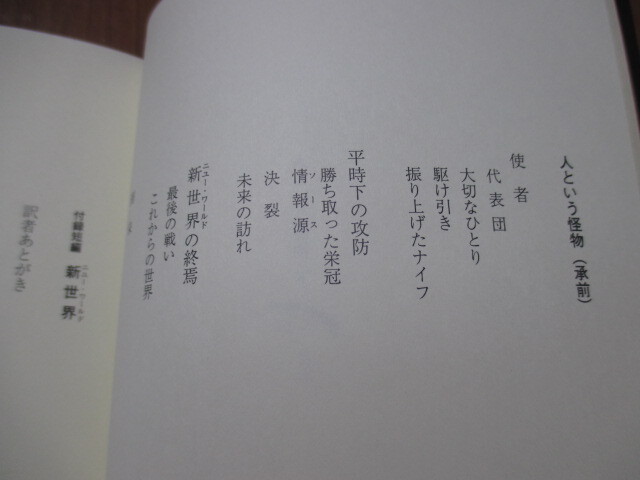 人という怪物(承前)
使者
代表団
大切なひとり
駆け引き
振り上げたナイフ
平時下の攻防
勝ち取った栄冠
情報源
ソース
決裂
未来の訪れ
新世界の終焉
ニュー・ワールド
最後の戦い
これからの世界
付録短編 新世界
ニュー・ワールド
訳者あとがき